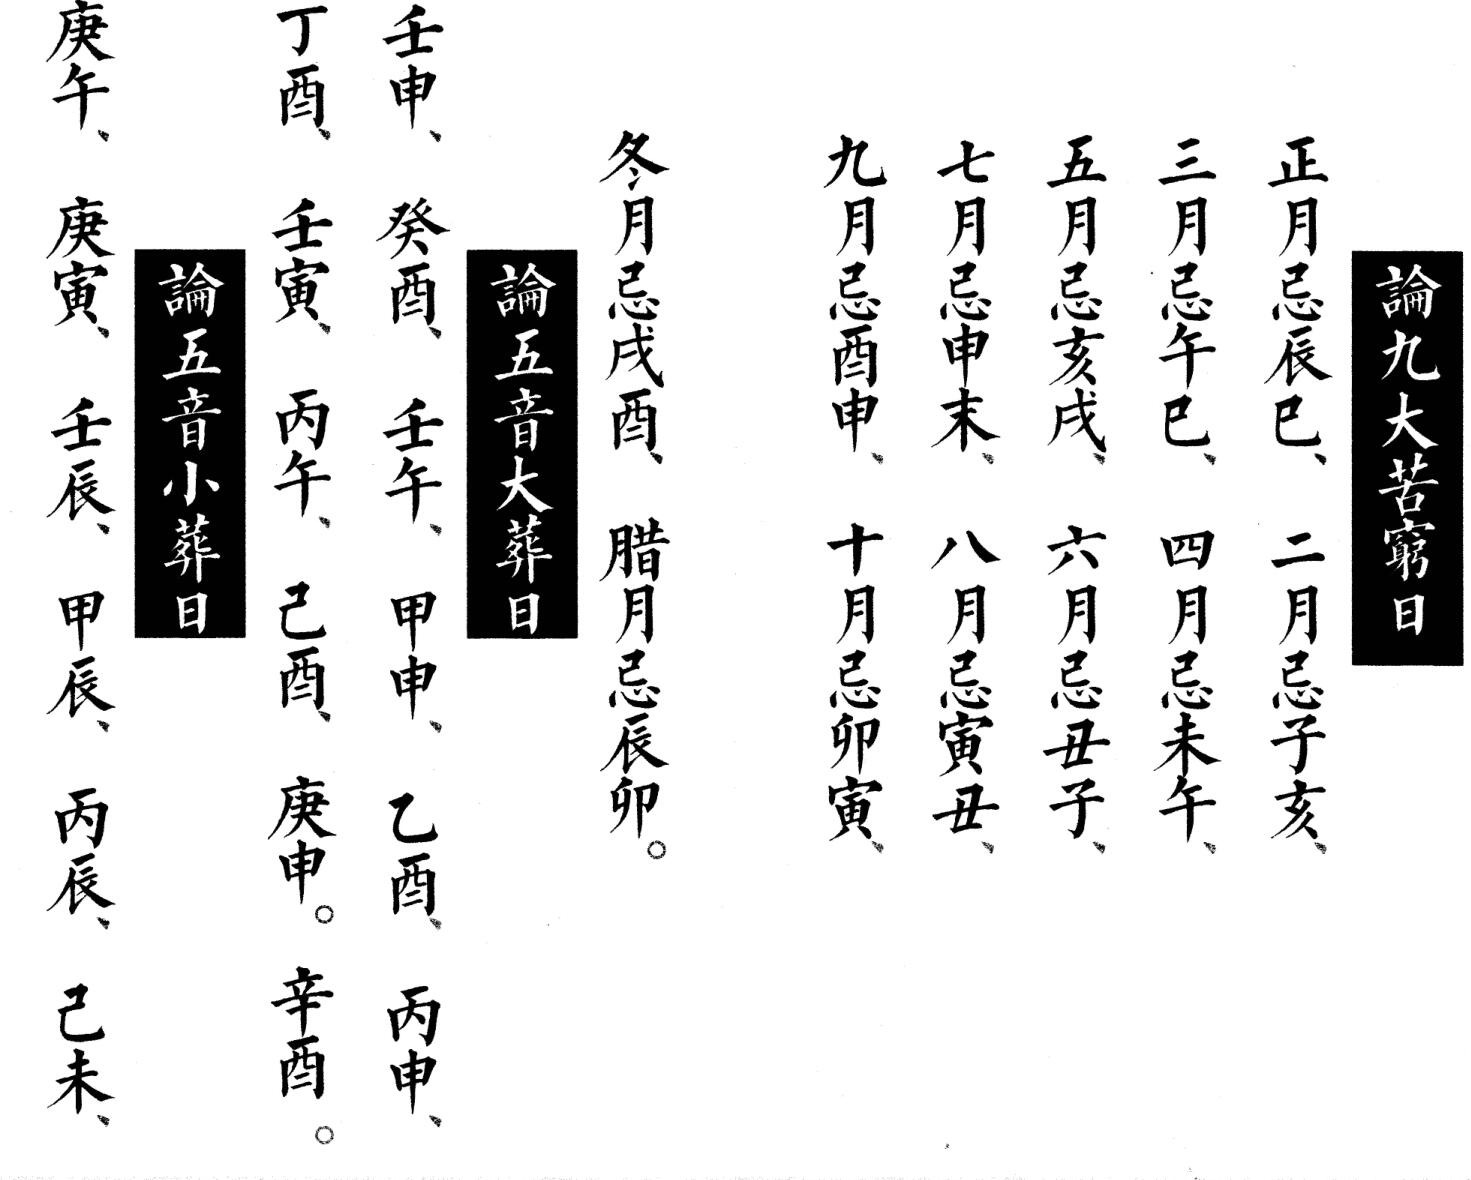 論九大苦窮日
正月忌辰巳、二月忌子亥、
三月忌午巳、四月忌未午、
五月忌亥戌、六月忌丑子、
七月忌申末、八月忌寅丑、
九月忌酉申、十月忌卯寅、
冬月忌戌酉、腊月忌辰卯。
論五音大葬日
壬申、癸酉、壬午、甲申、乙酉、丙申、
丁酉、壬寅、丙午、己酉、庚申。辛酉。
論五音小葬日
庚午、庚寅、壬辰、甲辰、丙辰、己未、